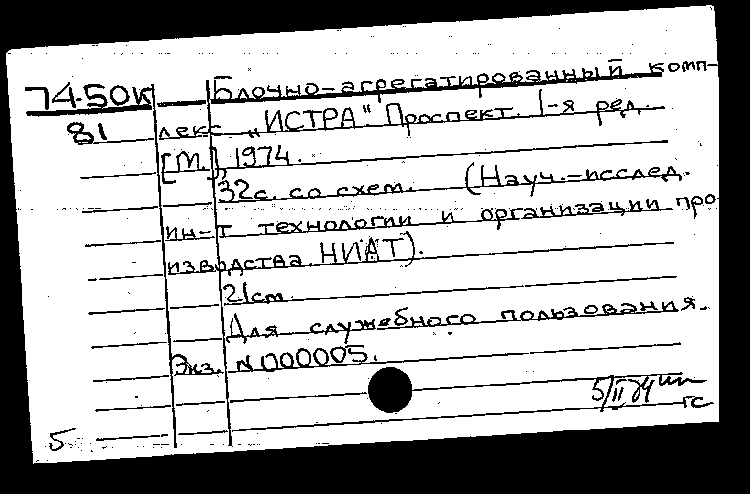 74-50к Блочно-агрегатированный комп-
81 лекс „ИСТРА". Проспект. 1-я ред.
[М.], 1974.
32с. со схем. (Науч.-исслед.
ин-т технологии и организации про
изводства НИАТ).
21см.
Для служебного пользования.
Экз. N 000005.
5/II 74
гс
5